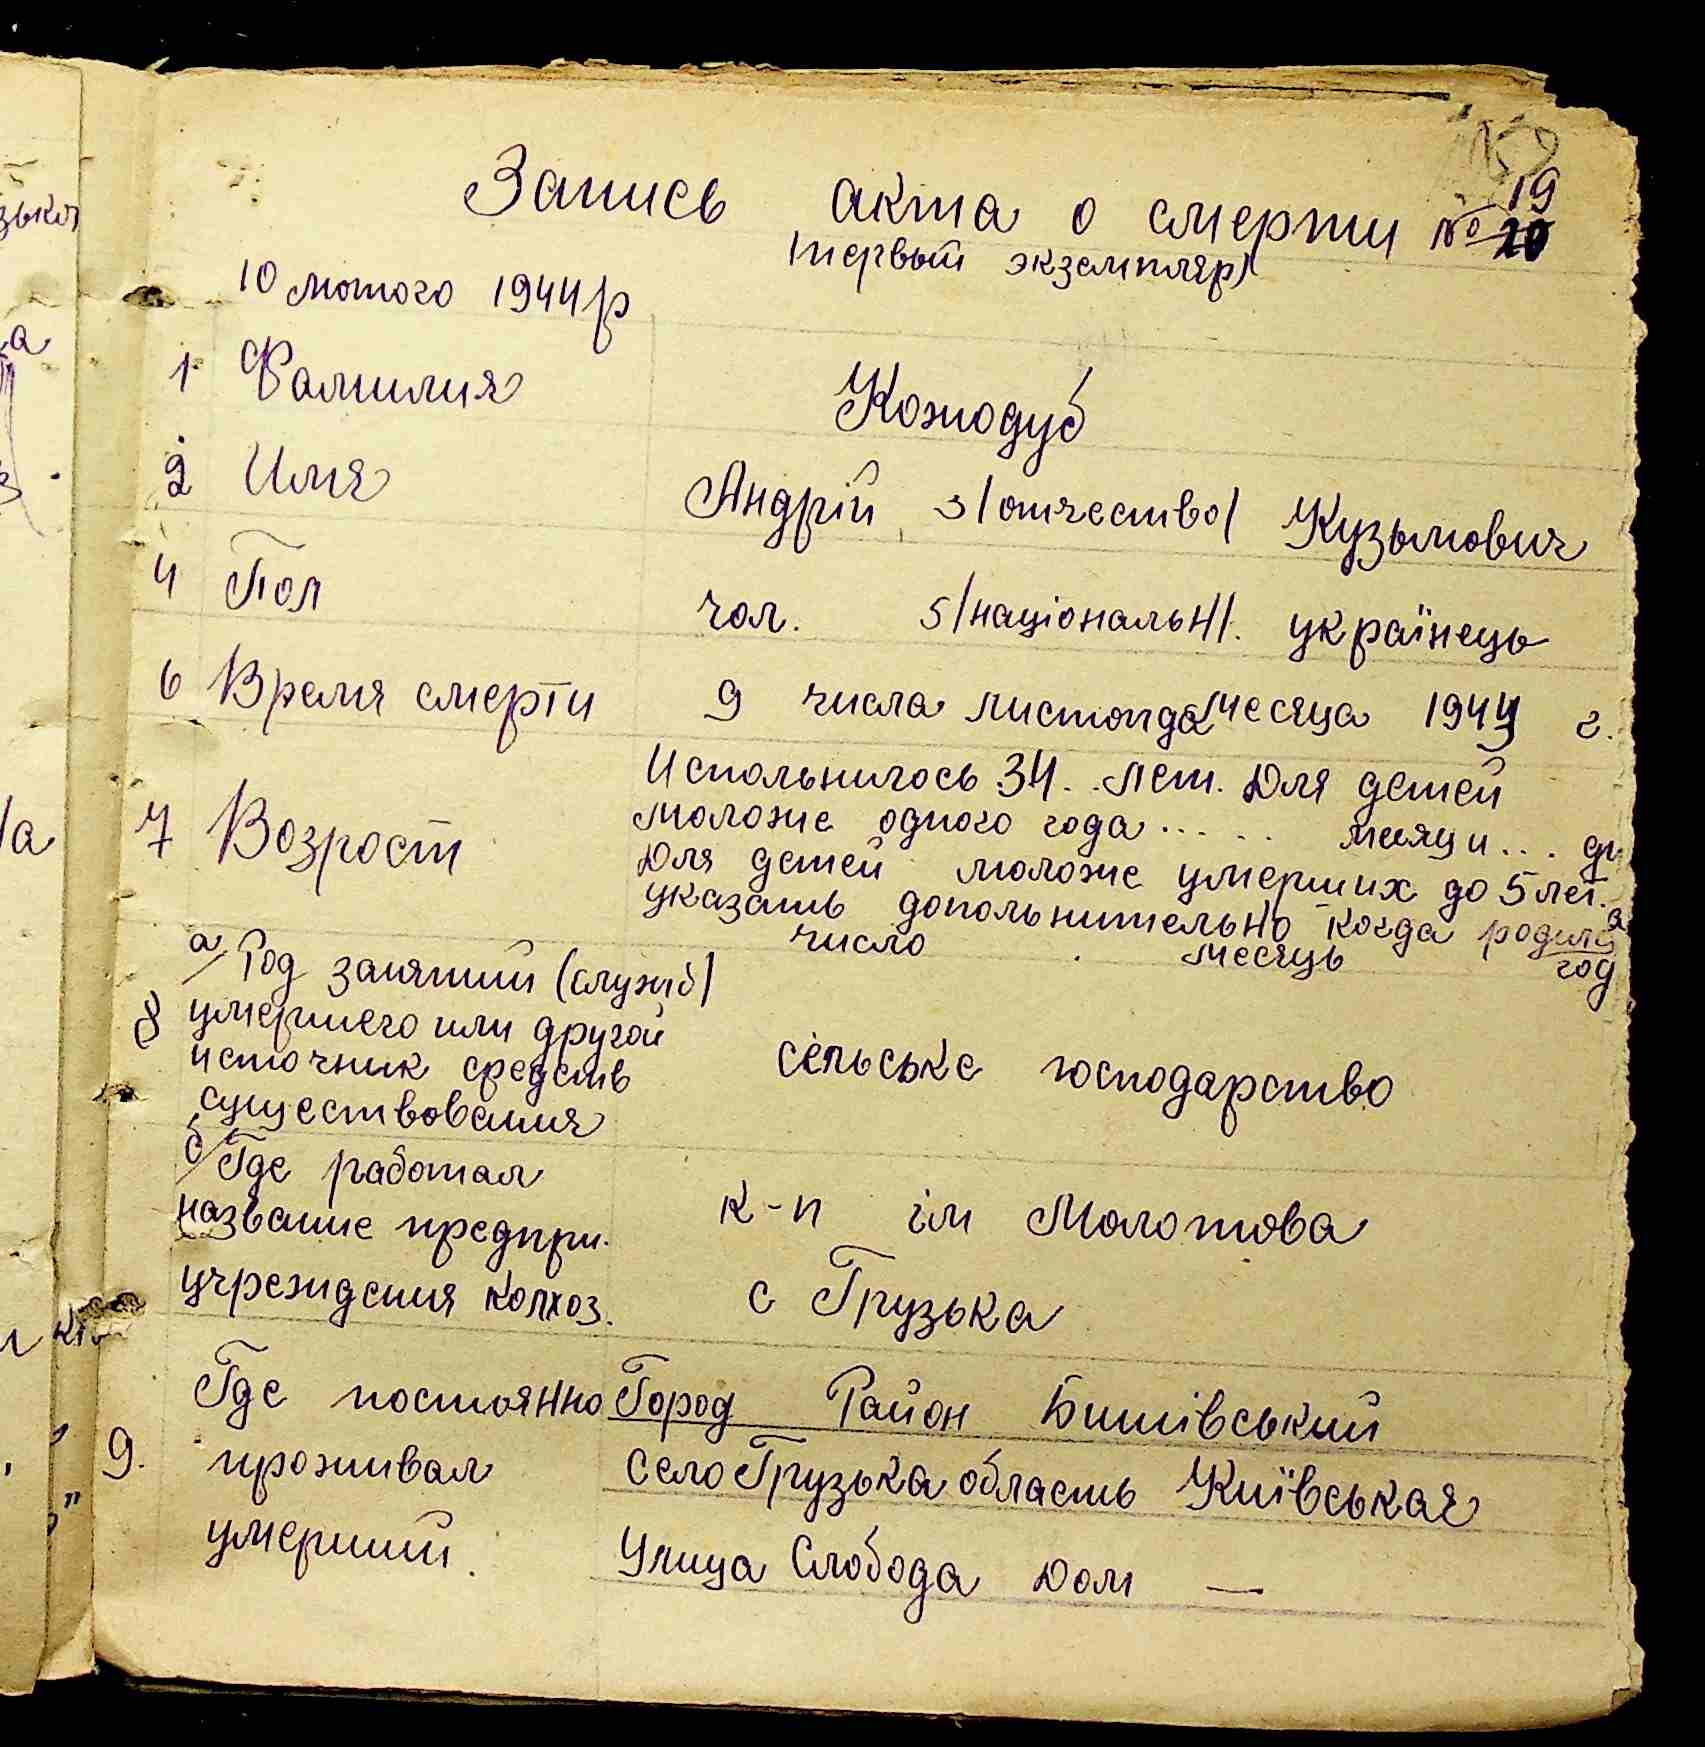 Запись акта о смерти № 19
20
(первый экземпляр)
10 лютого 1944 р
1 Фамилия Кожодуб
2 Имя Андрій 3/отчество/ Кузьмович
4 Пол чол. 5/національн/. українець
6 Время смерти 9 числа листопда месяца 1943 г.
Испольнилось 34.. лет. Для детей
моложе одного года ..... месяци...
7 Возрост
Для детей моложе умерших до 5 лет.
указать дополнительно когда родился
число месяць год
а/ Род занятий (служб)
8 умершего или другой
источник средств
существования
сельське господарство
б/ Где работал
название предпри.
учреждения колхоз.
к-п ім Молотова
с Грузька
9. Где постоянно
проживал
умерший.
Город Район Бишівський
село Грузька область Київськая
Улица Слобода Дом —